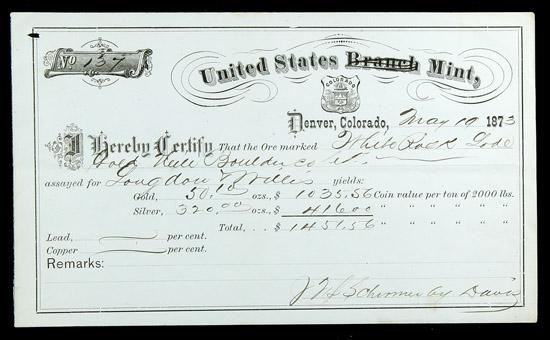 No 137
United States Branch Mint,
COLORADO
Denver, Colorado, May 10 1873
I Hereby Certify That the Ore marked White Rock Lode
Gold Hill Boulder Co
assayed for Longdon & Willis yields:
Gold, 50.10 ozs., $ 1035.56 Coin value per ton of 2000 lbs.
Silver, 320.00 ozs., $ 416.00 " " " " " "
Total, . . . $ 1451.56 " " " " " "
Lead, per cent.
Copper per cent.
Remarks:
J F L Schirmer by Davis